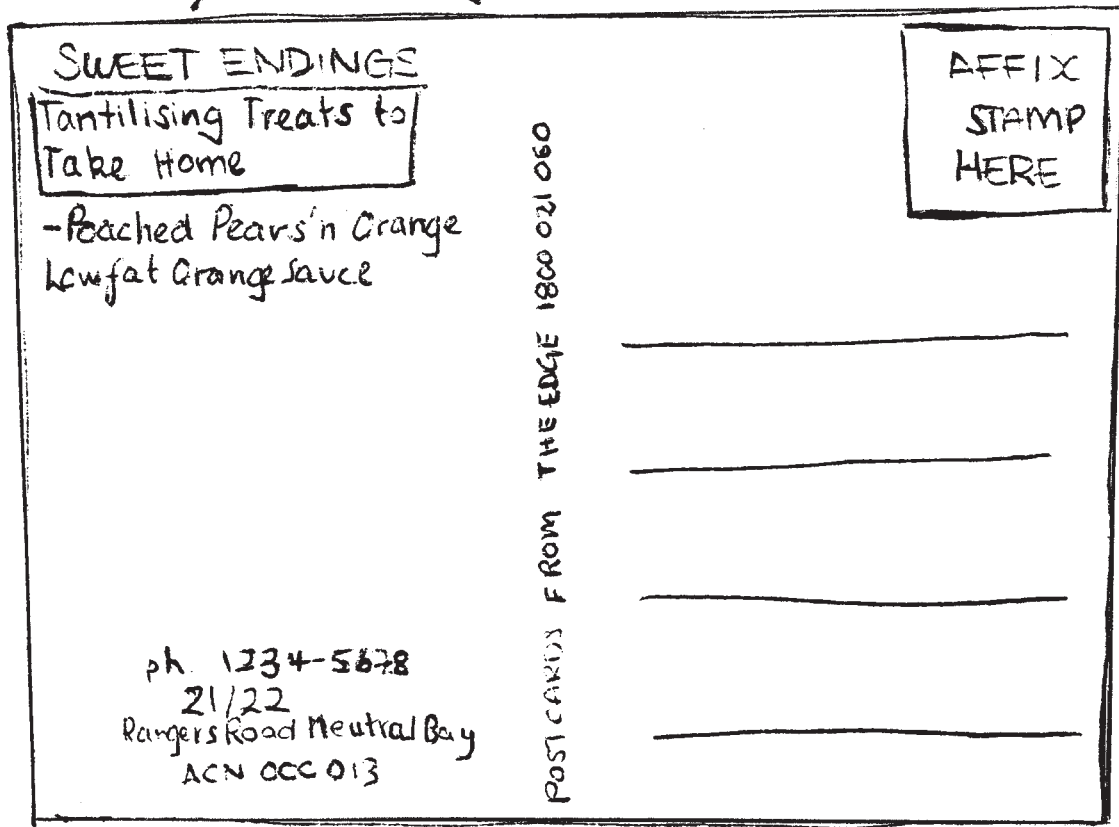 SWEET ENDINGS
Tantilising Treats to
Take Home
-Poached Pears'n Orange
Lowfat Orange Sauce
ph. 1234-5678
21/22
Rangers Road Neutral Bay
ACN 000 013
POSTCARDS FROM THE EDGE 1800 021 060
AFFIX
STAMP
HERE